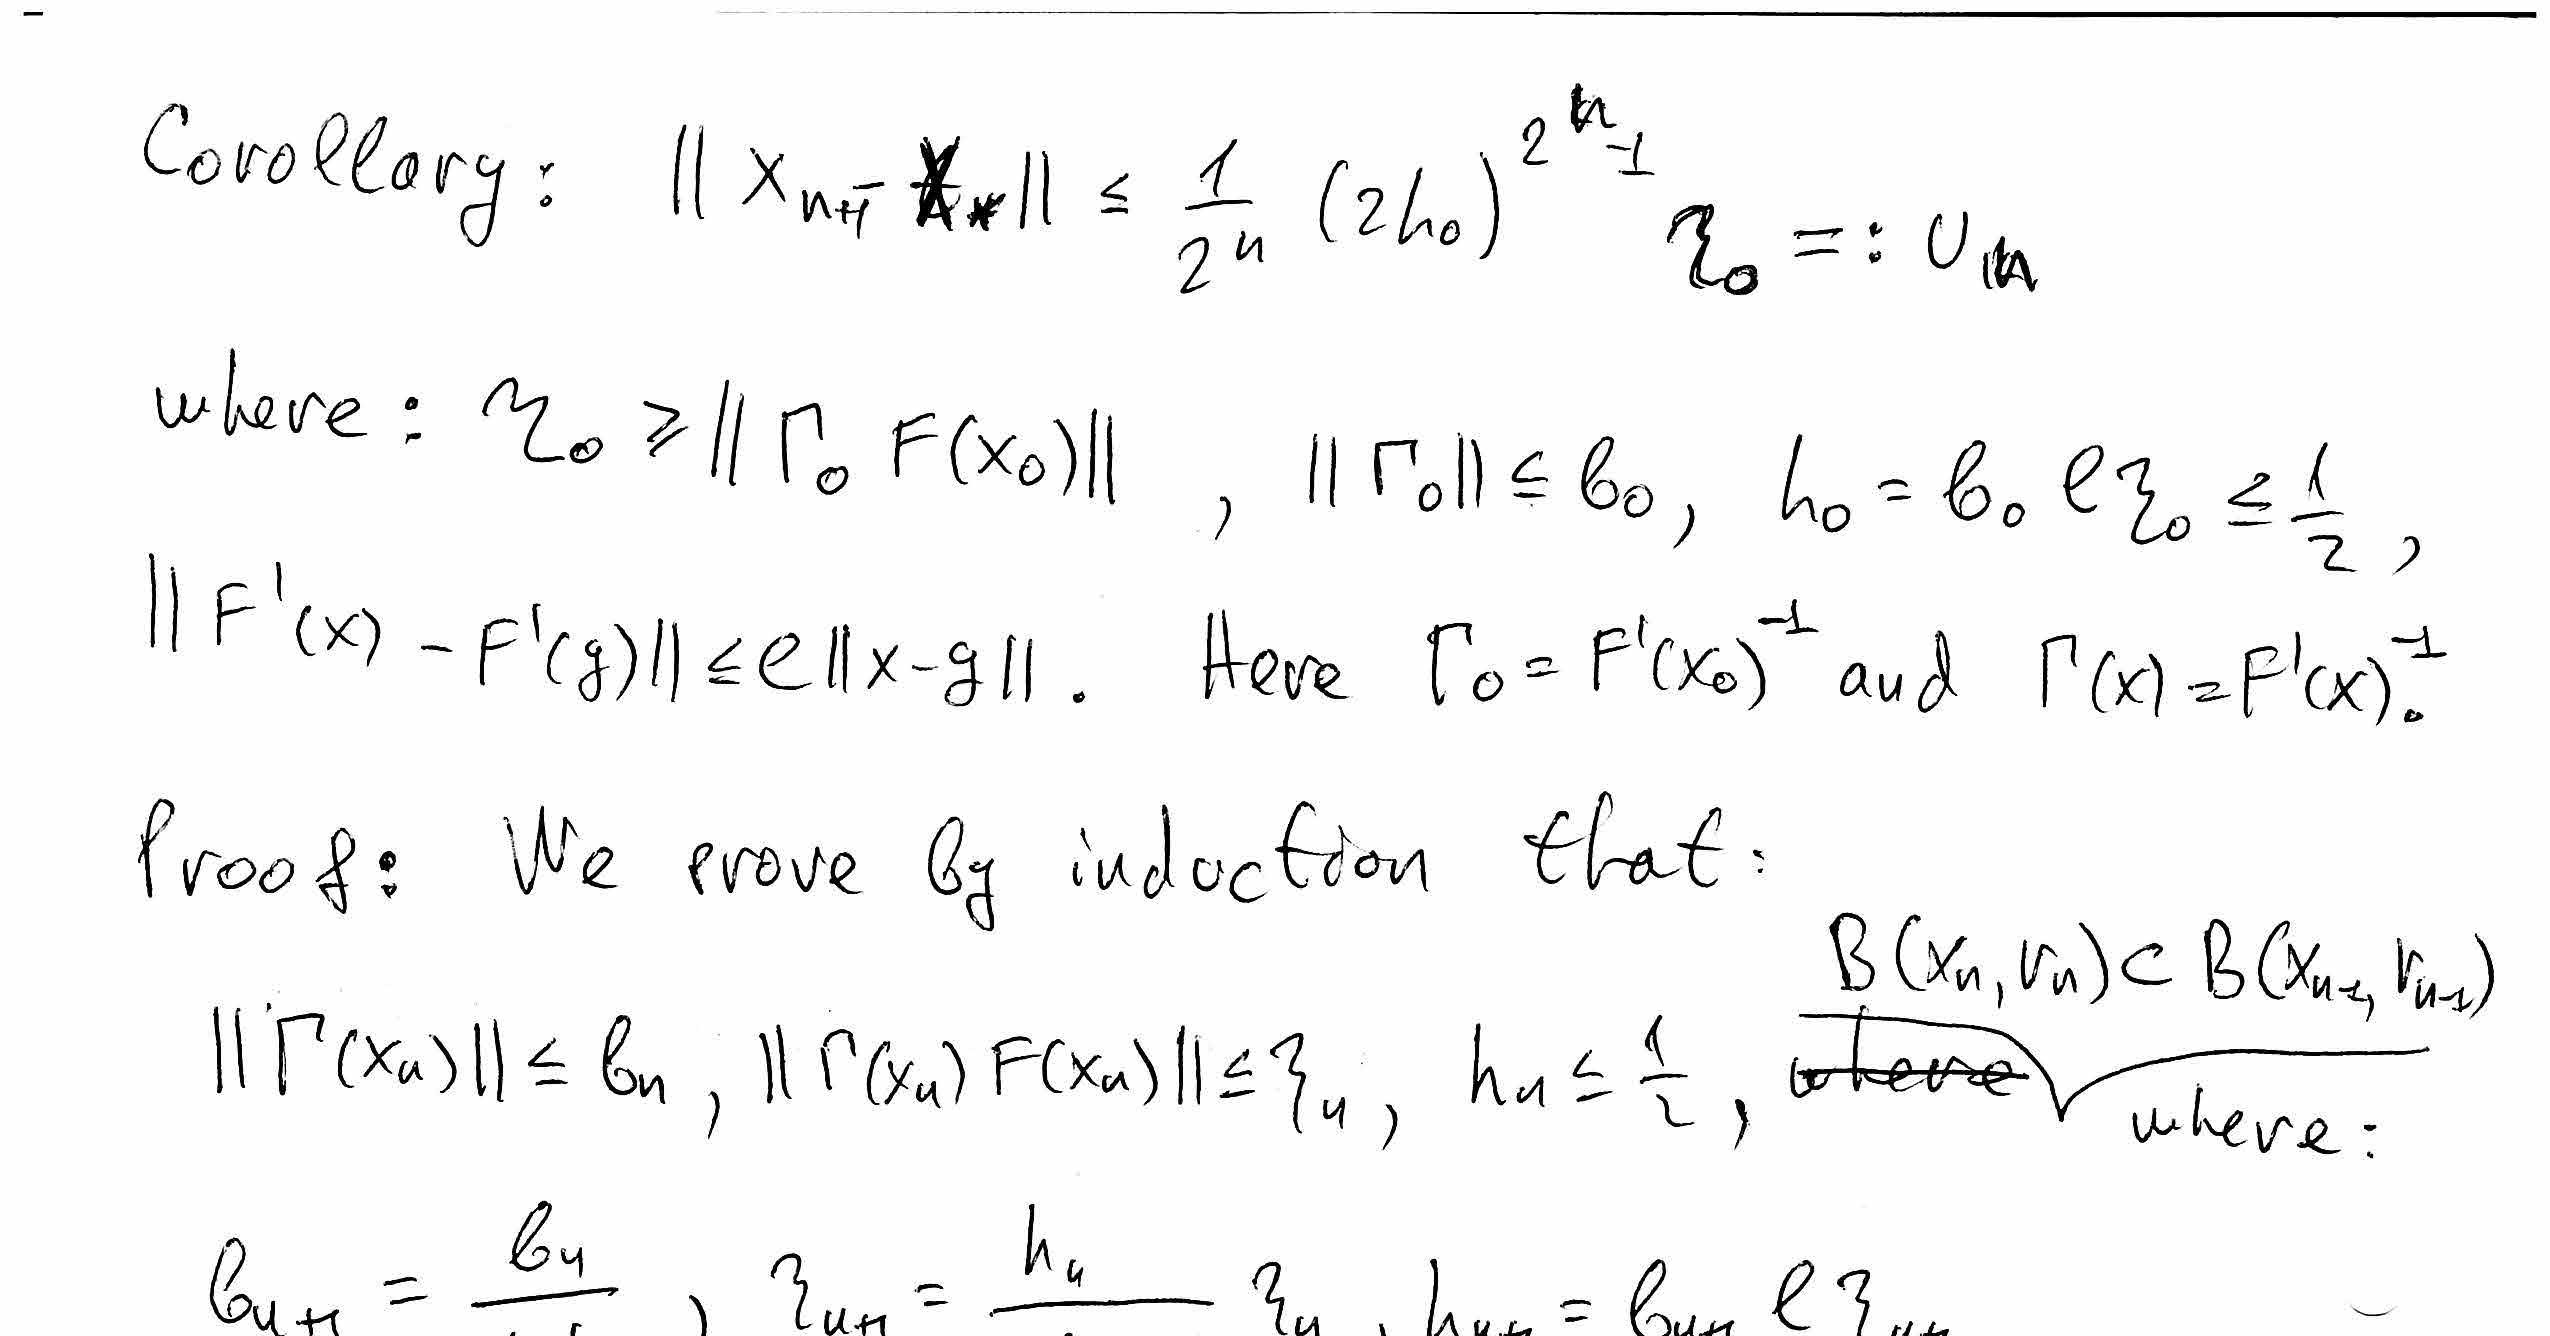 Corollary: ‖x_{n+1} - x_*‖ ≤ \frac{1}{2^n} (2h_0)^{2^n-1} η_0 =: U_n
where: η_0 ≥ ‖Γ_0 F(x_0)‖, ‖Γ_0‖ ≤ b_0, h_0 = b_0 ℓ η_0 ≤ \frac{1}{2},
‖F'(x) - F'(y)‖ ≤ ℓ‖x-y‖. Here Γ_0 = F'(x_0)^{-1} and Γ(x) = F'(x)^{-1}.
Proof: We prove by induction that:
B(x_n, r_n) ⊂ B(x_{n-1}, r_{n-1})
‖Γ(x_n)‖ ≤ b_n, ‖Γ(x_n) F(x_n)‖ ≤ η_n, h_n ≤ \frac{1}{2}, where:
b_{n+1} = b_n , η_{n+1} = h_n η_n, h_{n+1} = b_{n+1} ℓ η_{n+1}